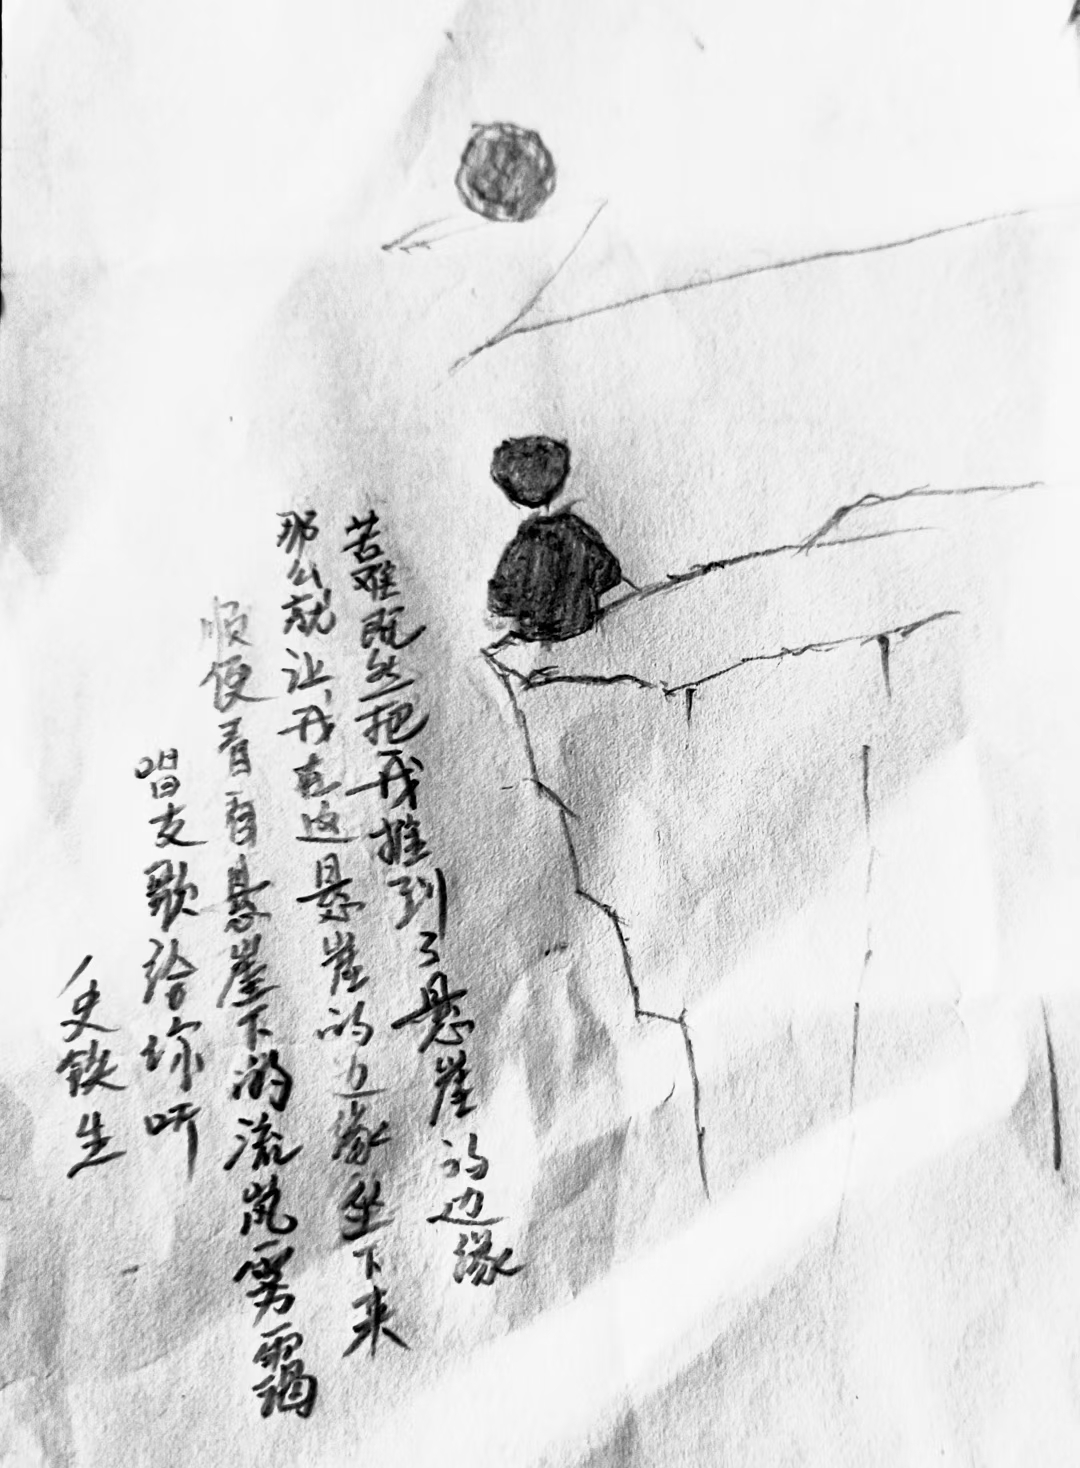 苦难既然把我推到了悬崖的边缘
那么就让我在这悬崖的边缘坐下来
顺便看看悬崖下的流岚雾霭
唱支歌给你听
史铁生